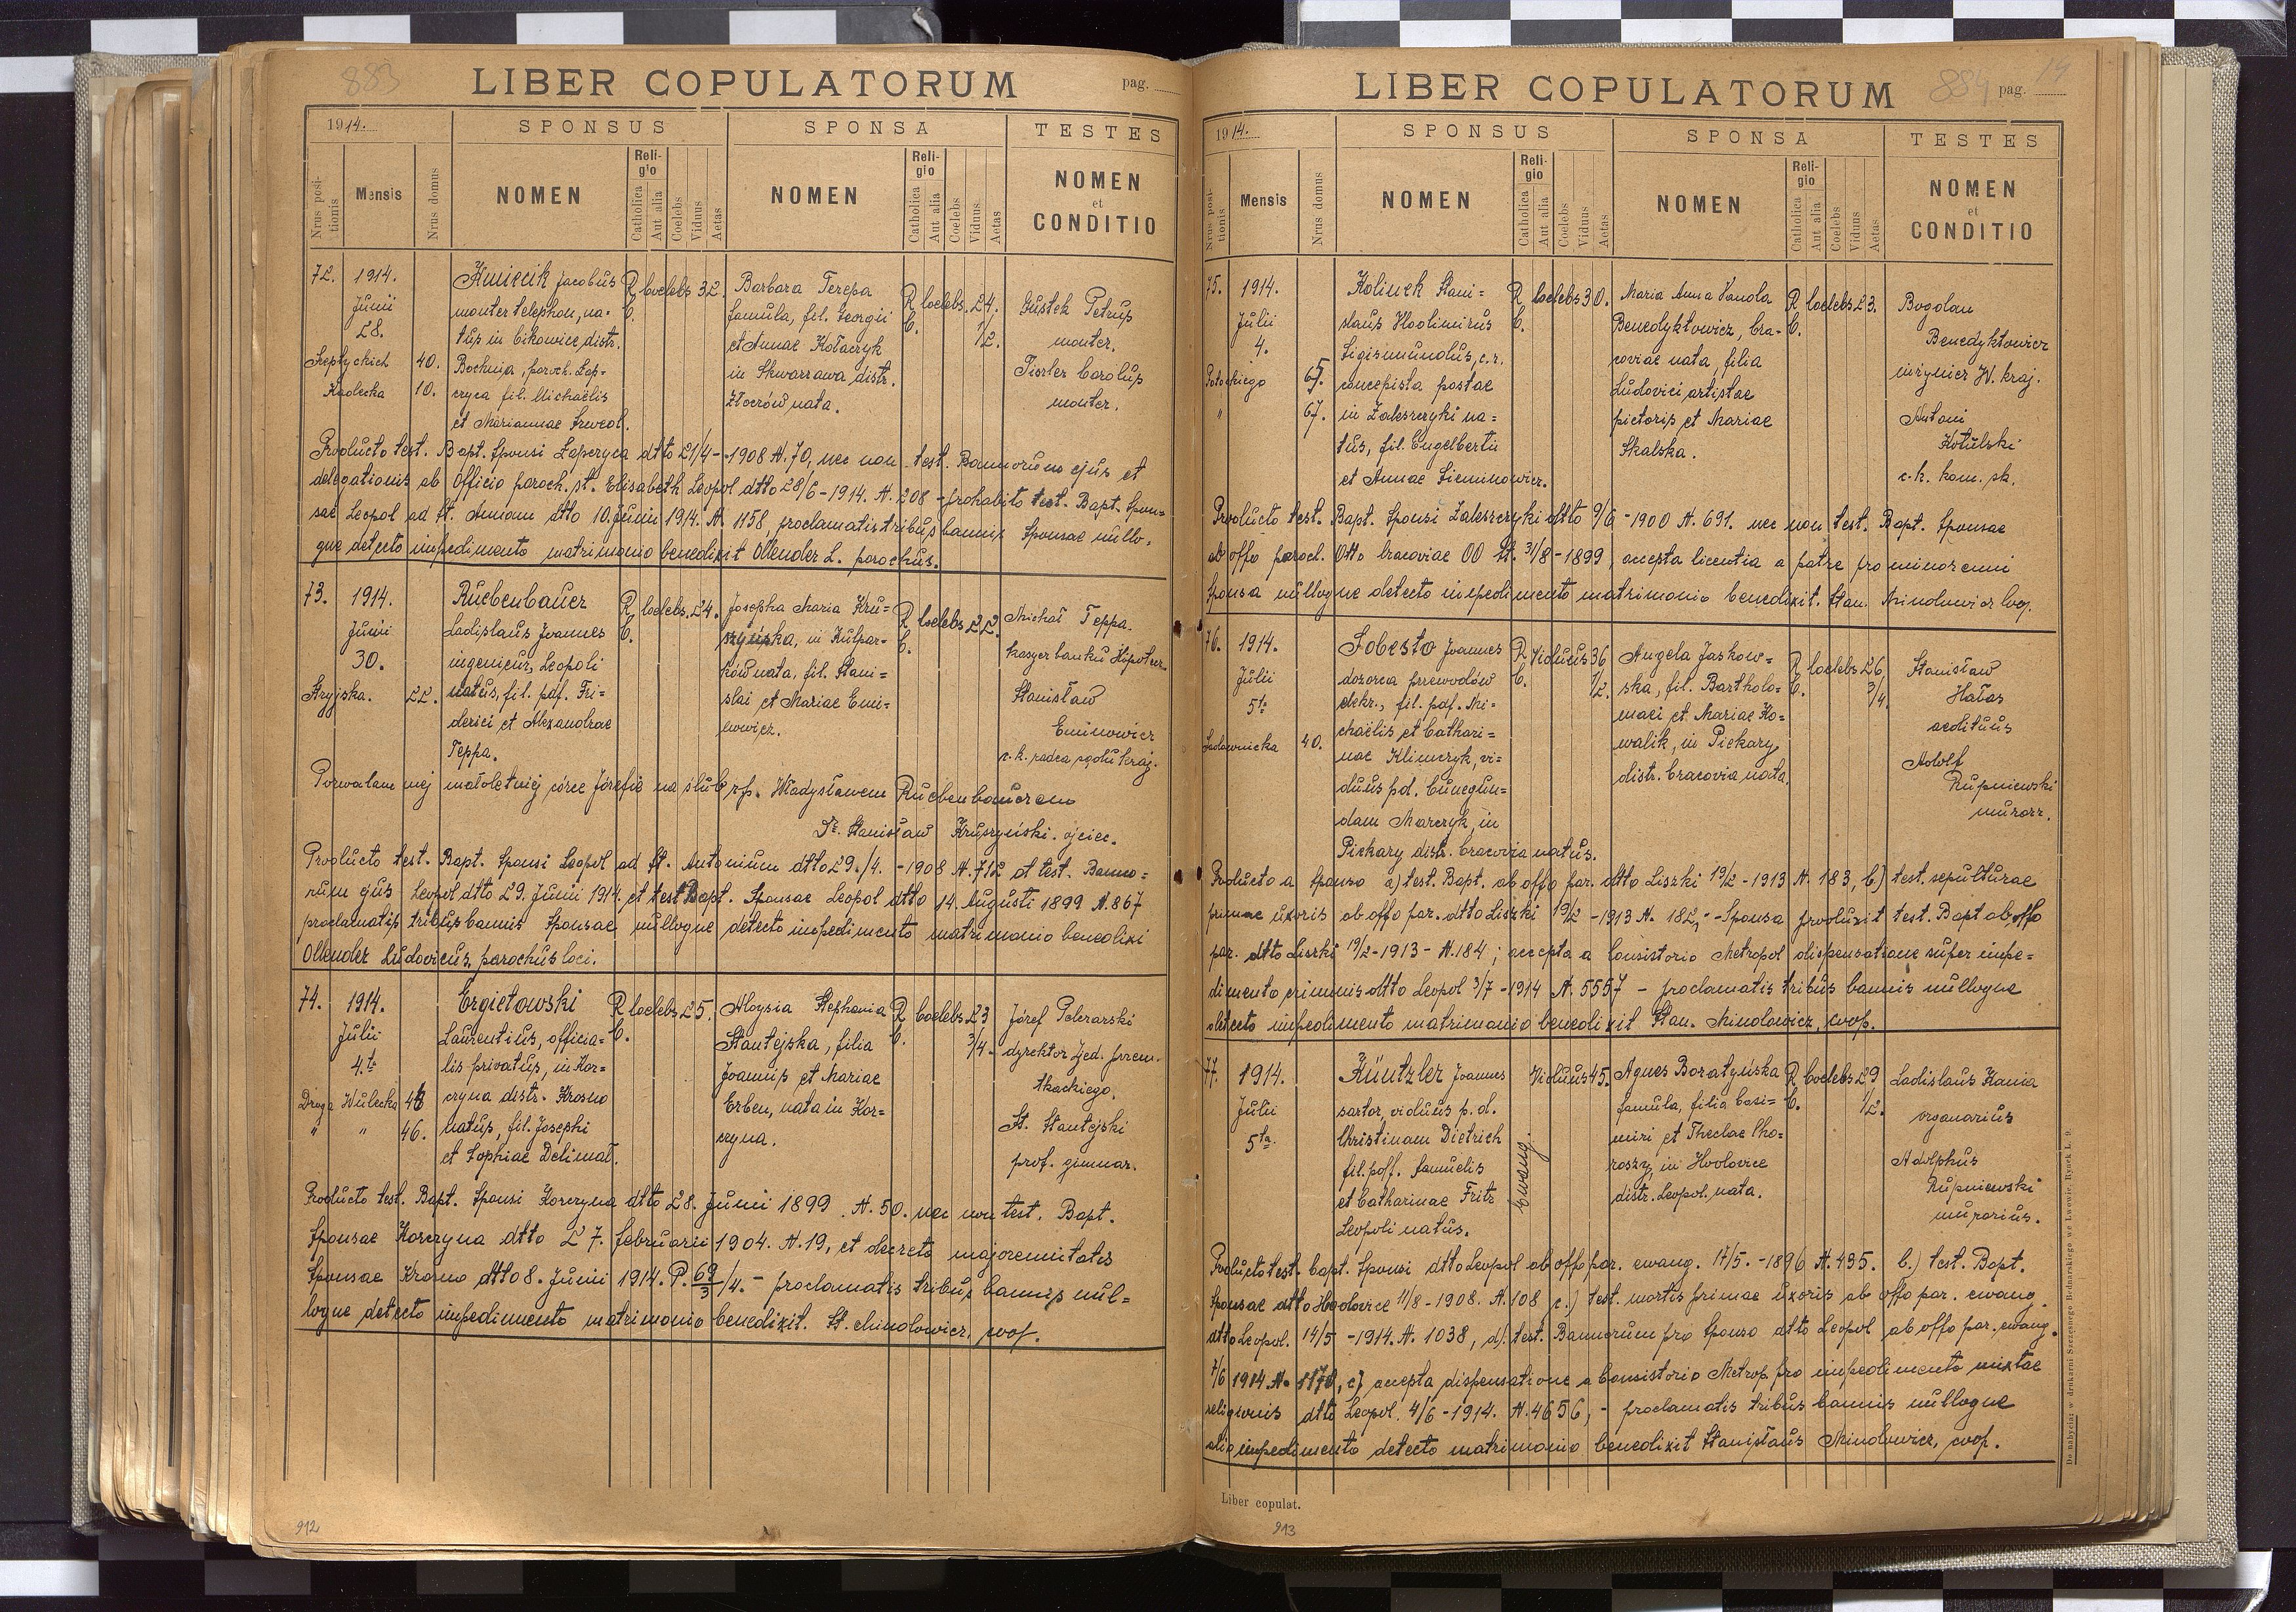 883
LIBER COPULATORUM
pag.
1914.
SPONSUS
SPONSA
TESTES
Nrus positionis
Mensis
Nrus domus
NOMEN
Religio
Catholica
Aut alia
Coelebs
Viduus
Aetas
NOMEN
Religio
Catholica
Aut alia
Coelebs
Vidnus
Aetas
NOMEN
et
CONDITIO
72.
1914.
Junii
28.
Szeptyckich 40.
Kadecka 10.
Kmiecik Jacobus
monter telephon, na-
tus in Cikowice, distr.
Bochnia, paroch. Łap-
czyca fil. Michaëlis
et Mariannae Szweol.
R. C.
Coelebs 32.
Barbara Terepa
famula, fil. Georgii
et Annae Kołaczyk
in Skwarzawa distr.
Złoczów nata.
R. C.
Coelebs. 24. 1/2.
Gustek Petrus
monter.
Tiszler Carolus
monter.
Producto test. Bapt. Sponsi Łapczyca dtto 21/4 - 1908 N. 70, nec non test. Bannorum ejus et
delegationis ab Officio paroch. st. Elisabeth Leopol dtto 28/6 - 1914. N. 208 - prohabito test. Bapt. Spon-
sae Leopol ad St. Annam dtto 10. Junii 1914. N. 1158, proclamatis tribus bannis Sponsae nullo-
que detecto impedimento matrimonio benedixit Ollender L. parochus.
73.
1914.
Junii
30.
Stryjska. 22.
Ruebenbauer
Ladislaus Joannes
ingenieur, Leopoli
natus, fil. pdf. Fri-
derici et Alexandrae
Teppa.
R. C.
Coelebs. 24.
Josepha Maria Kru-
szyńska, in Kulpar-
ków nata, fil. Stani-
slai et Mariae Emi-
nowicz.
R. C.
Coelebs 22.
Michał Teppa.
kasyer banku Hipotecz.
Stanisław
Eminowicz
c. k. radca sądu kraj.
Pozwalam mej małoletniej córce Józefie na ślub z p. Władysławem Ruebenbauerem
Dr. Stanisław Kruszyński. ojciec.
Producto test. Bapt. Sponsi Leopol ad St. Antonium dtto 29./4. - 1908 N. 712 et test. Banno-
rum ejus Leopol dtto 29. Junii 1914. et test Bapt. Sponsae Leopol dtto 14. Augusti 1899 N. 867
proclamatis tribus bannis Sponsae nulloque detecto impedimento matrimonio benedixi
Ollender Ludovicus, parochus loci.
74.
1914.
Julii
4.ta
Droga Wulecka 46
" " 46.
Ergietowski
Laurentius, officia-
lis privatus, in Kor-
czyna distr. Krosno
natus, fil. Josephi
et Sophiae Delimat.
R. C.
Coelebs 25.
Aloysia Stephania
Stantejska, filia
Joannis et Mariae
Erben, nata in Kor-
czyna.
R. C.
Coelebs 23 3/4.
Józef Pelczarski
dyrektor Zjed. przem.
tkackiego.
St. Stantejski
prof. gimnaz.
Producto test. Bapt. Sponsi Korczyna dtto 28. Junii 1899. N. 50. nec non test. Bapt.
Sponsae Korczyna dtto 27. februarii 1904. N. 19, et decreto majorennitatis
Sponsae Krosno dtto 8. Junii 1914. P. 69/3 /4. - proclamatis tribus bannis nul-
loque detecto impedimento matrimonio benedixit. St. Mindowicz, coop.
912
884
14
LIBER COPULATORUM
pag.
1914.
SPONSUS
SPONSA
TESTES
Nrus positionis
Mensis
Nrus domus
NOMEN
Religio
Catholica
Aut alia
Coelebs
Vidnus
Aetas
NOMEN
Religio
Catholica
Aut alia
Coelebs
Vidnus
Aetas
NOMEN
et
CONDITIO
75.
1914.
Julii
4.
Potockiego 65.
" 67.
Kolinek Stani-
slaus Wlodimirus
Sigismundus, c. r.
concepista postae
in Zaleszczyki na-
tus, fil. Engelberti
et Annae Sieminowicz.
R. C.
Coelebs 30.
Maria Anna Vanda
Benedyktowicz, Cra-
coviae nata, filia
Ludovici artistae
pictoris et Mariae
Skalska.
R. C.
Coelebs 23.
Bogdan
Benedyktowicz
inżynier W. kraj.
Antoni
Kotulski
c. k. kom. sk.
Producto test. Bapt. Sponsi Zaleszczyki dtto 9/6 - 1900 N. 691. nec non test. Bapt. Sponsae
ab offo paroch. dtto Cracoviae OO St. 31/8 - 1899, accepta licentia a patre pro minorenni
sponsa nulloque detecto impedimento matrimonio benedixit. Stan. Mindowicz coop.
76.
1914.
Julii
5ta
Sadownicka 40.
Sobesto Joannes
dozorca przewodów
elektr., fil. pdf. Mi-
chaëlis et Cathari-
nae Klimczyk, vi-
duus p d. Cunegun-
dam Marczyk, in
Piekary distr. Cracovia natus.
R. C.
Viduus 36 1/2.
Angela Jaskow-
ska, fil. Bartholo-
maei et Mariae Ko-
walik, in Piekary
distr. Cracovia nata.
R. C.
Coelebs 26. 3/4.
Stanisław
Hałas
aedituus
Adolf
Rupniewski
murarz.
Producto a Sponso a) test. Bapt. ab offo par. dtto Liszki 19/2 - 1913 N. 183, b) test. sepulturae
primae uxoris ab offo par. dtto Liszki 19/2 - 1913 N. 182, - Sponsa produxit test. Bapt ab offo
par. dtto Liszki 19/2 - 1913 - N. 184; accepta a Consistorio Metropol dispensatione super impe-
dimento criminis dtto Leopol 3/7 - 1914 N. 5557 - proclamatis tribus bannis nulloque
detecto impedimento matrimonio benedixit Stan. Mindowicz, coop.
77.
1914.
Julii
5ta.
Küntzler Joannes
sartor, viduus p. d.
Christinam Dietrich
fil. poff. Samuelis
et Catharinae Fritz
Leopoli natus.
Ewang.
Viduus 45.
Agnes Boratyńska
famula, filia Casi-
miri et Theclae Cho-
roszy, in Hodovice
distr. Leopol. nata.
R. C.
Coelebs 29 1/2.
Ladislaus Kania
organarius
Adolphus
Rupniewski
murarius.
Producto test. bapt. Sponsi dtto Leopol ab offo par. ewang. 17/5. - 1896 N. 435. b.) test. Bapt.
Sponsae dtto Hodovice 11/8 - 1908. N. 108 c.) test. mortis primae uxoris ab offo par. ewang.
dtto Leopol. 14/5 - 1914. N. 1038, d). test. Bannorum pro Sponso dtto Leopol ab offo par. ewang.
7/6 1914 N. 1170, e) accepta dispensatione a Consistorio Metrop. pro impedimento mixtae
religionis dtto Leopol. 4/6 - 1914. N. 4656, - proclamatis tribus bannis nulloque
alio impedimento detecto matrimonio benedixit Stanislaus Mindowicz, coop.
Liber copulat.
913
Do nabycia: w drukarni Szczęsnego Bednarskiego we Lwowie, Rynek L. 9.